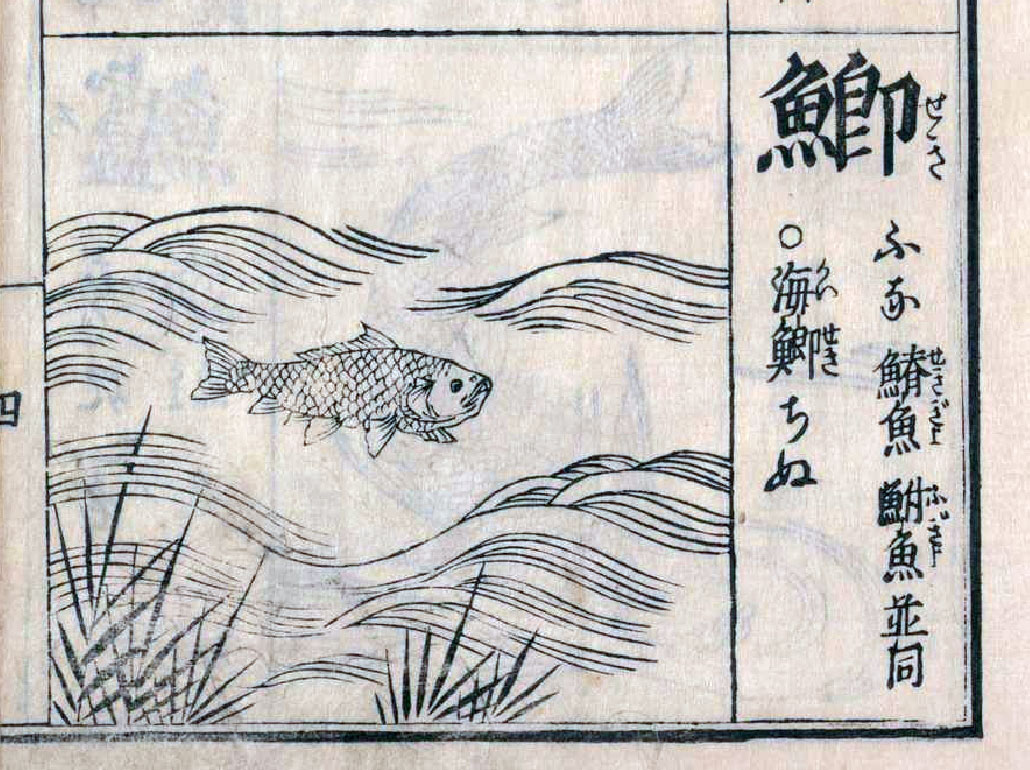 鯽
ふな 鰿魚 鮒魚並同
せきぎよ
ふぎよ
○海鯽 ちぬ
かいせき
四